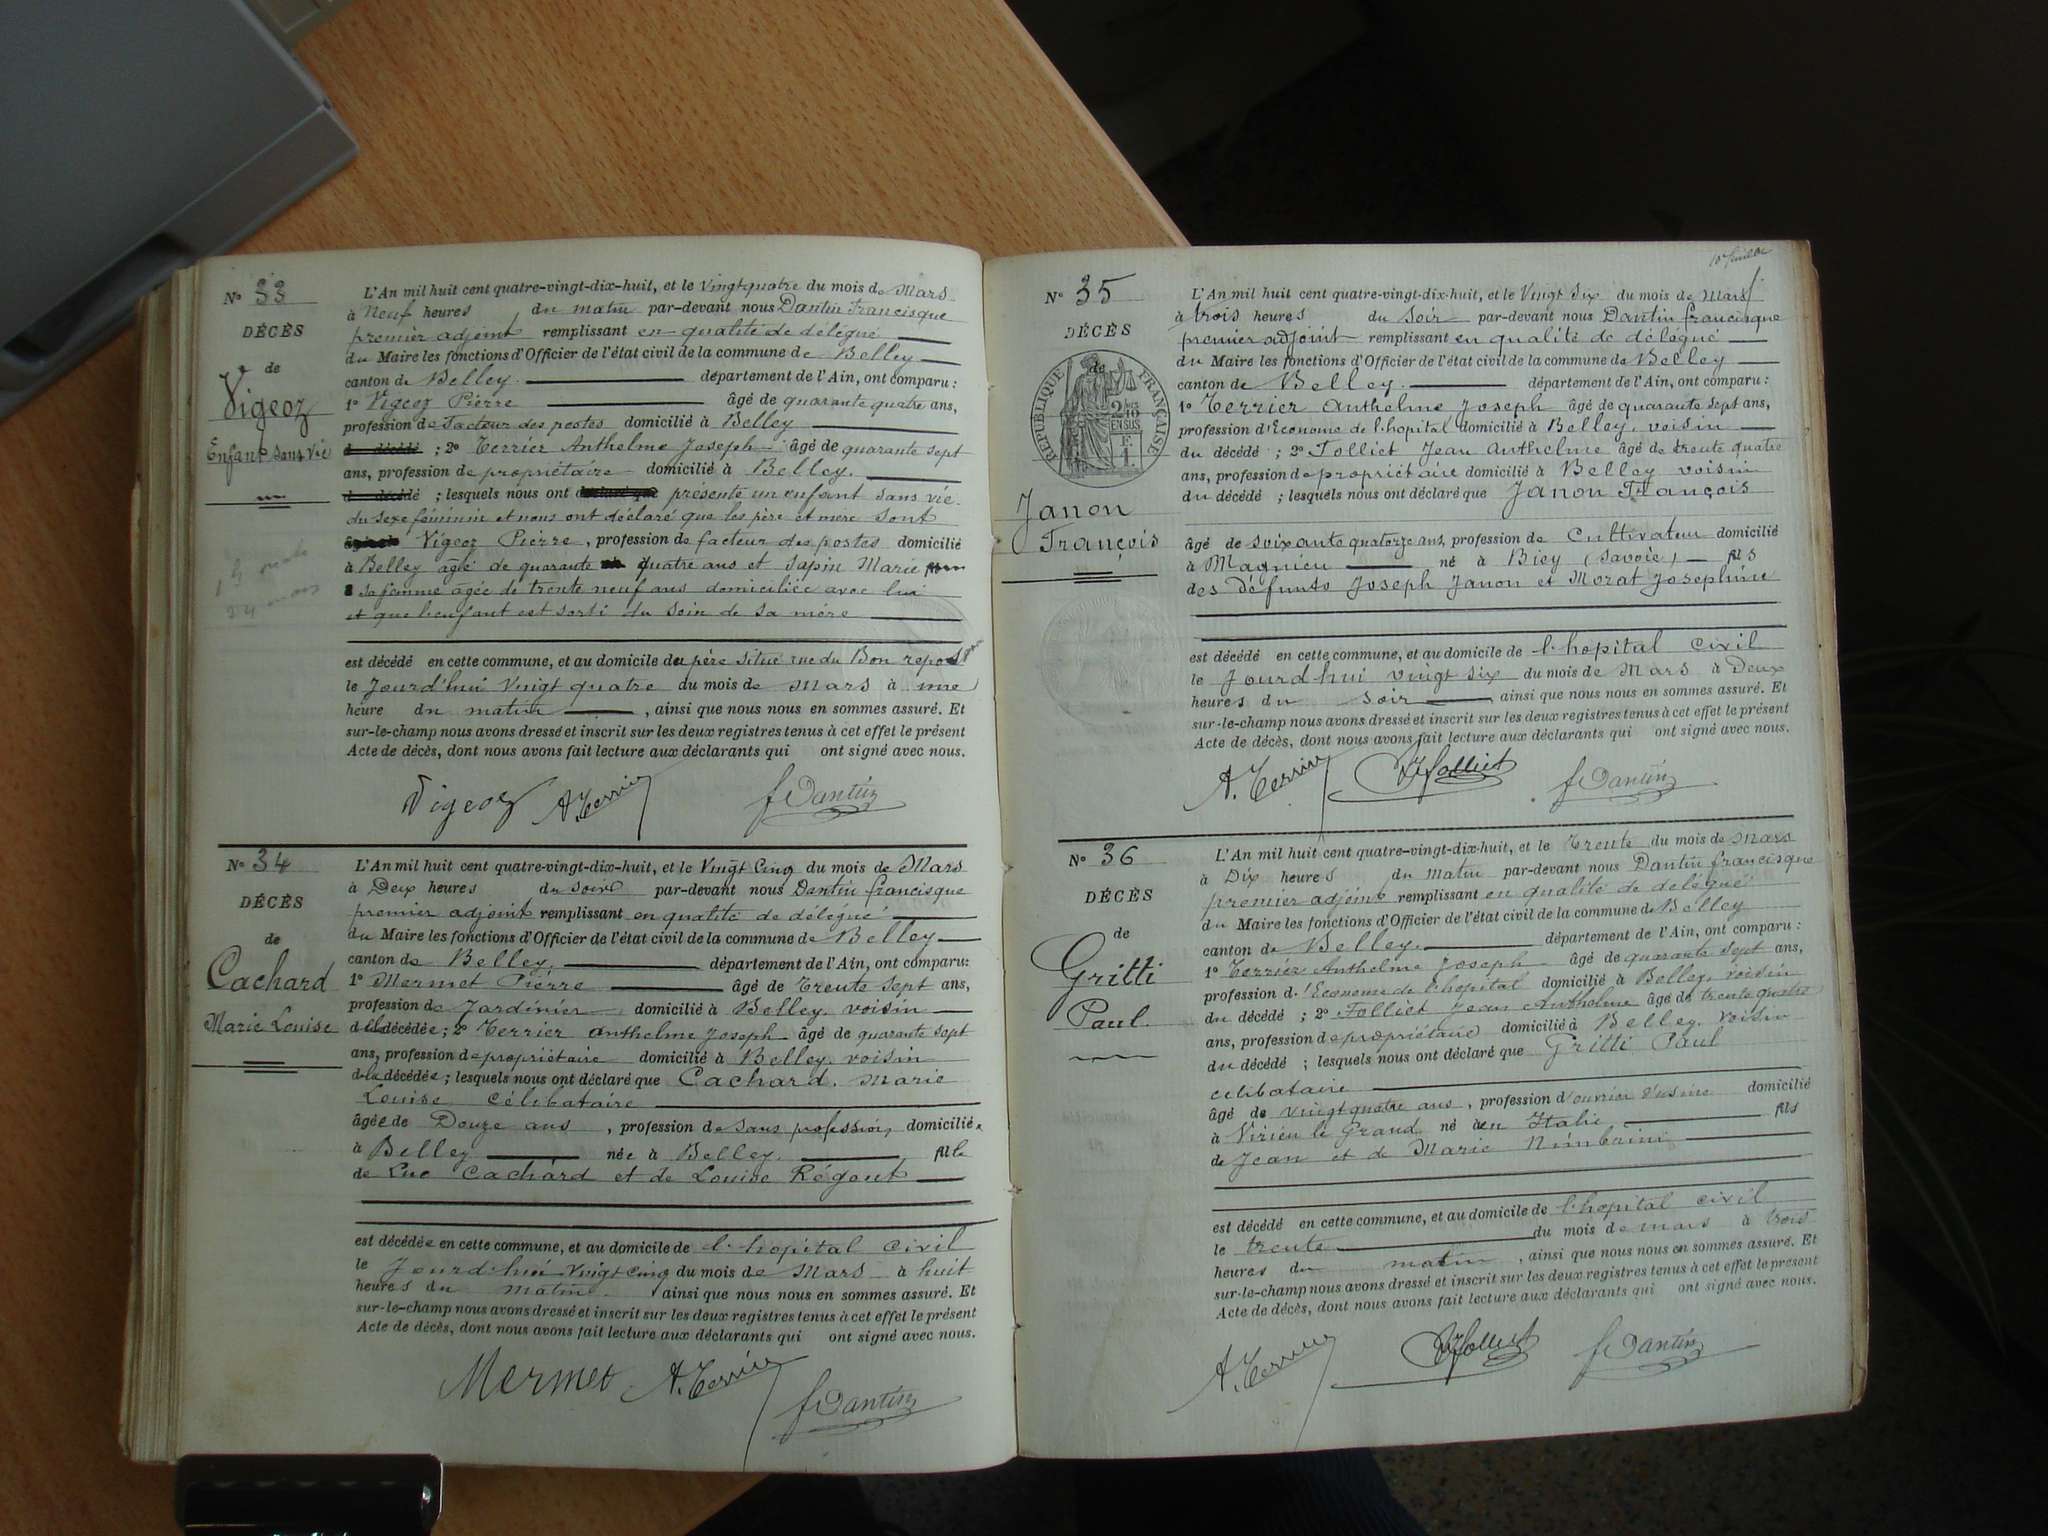 N° 33
DÉCÈS
de
Vigeoz
Enfant sans vie
L'An mil huit cent quatre-vingt-dix-huit, et le Vingt quatre du mois de Mars
à Neuf heures du matin par-devant nous Dantin Francisque
premier adjoint remplissant en qualité de délégué
du Maire les fonctions d'Officier de l'état civil de la commune de Belley
canton de Belley. département de l'Ain, ont comparu :
1° Vigeoz Pierre âgé de quarante quatre ans,
profession de Facteur des postes domicilié à Belley
; 2° Terrier Anthelme Joseph âgé de quarante sept
ans, profession de propriétaire domicilié à Belley.
; lesquels nous ont présenté un enfant sans vie
du sexe féminin et nous ont déclaré que les père et mère sont
Vigeoz Pierre, profession de facteur des postes domicilié
à Belley âgé de quarante quatre ans et Sapin Marie
sa femme âgée de trente neuf ans domiciliée avec lui
et que l'enfant est sorti du sein de sa mère
est décédé en cette commune, et au domicile du père situé rue du Bon repos
le Jourd'hui Vingt quatre du mois de Mars à une
heure du matin, ainsi que nous nous en sommes assuré. Et
sur-le-champ nous avons dressé et inscrit sur les deux registres tenus à cet effet le présent
Acte de décès, dont nous avons fait lecture aux déclarants qui ont signé avec nous.
Vigeoz A. Terrier f Dantin
N° 34
DÉCÈS
de
Cachard
Marie Louise
L'An mil huit cent quatre-vingt-dix-huit, et le Vingt Cinq du mois de Mars
à Deux heures du soir par-devant nous Dantin francisque
premier adjoint remplissant en qualité de délégué
du Maire les fonctions d'Officier de l'état civil de la commune de Belley
canton de Belley. département de l'Ain, ont comparu :
1° Mermet Pierre âgé de trente sept ans,
profession de Jardinier domicilié à Belley, voisin
de la décédée ; 2° Terrier Anthelme Joseph âgé de quarante sept
ans, profession de propriétaire domicilié à Belley, voisin
de la décédée ; lesquels nous ont déclaré que Cachard, Marie
Louise célibataire
âgée de Douze ans, profession de sans profession, domiciliée
à Belley née à Belley. fille
de Luc Cachard et de Louise Régent
est décédée en cette commune, et au domicile de l'hopital civil
le Jourd'hui Vingt cinq du mois de Mars à huit
heures du matin. ainsi que nous nous en sommes assuré. Et
sur-le-champ nous avons dressé et inscrit sur les deux registres tenus à cet effet le présent
Acte de décès, dont nous avons fait lecture aux déclarants qui ont signé avec nous.
Mermet A. Terrier f Dantin
N° 35
DÉCÈS
de
RÉPUBLIQUE FRANÇAISE
2/10
EN SUS
Janon
François
L'An mil huit cent quatre-vingt-dix-huit, et le Vingt Six du mois de Mars
à trois heures du soir par-devant nous Dantin francisque
premier adjoint remplissant en qualité de délégué
du Maire les fonctions d'Officier de l'état civil de la commune de Belley
canton de Belley. département de l'Ain, ont comparu :
1° Terrier Anthelme Joseph âgé de quarante sept ans,
profession d'Econome de l'hopital domicilié à Belley, voisin
du décédé ; 2° Folliet Jean Anthelme âgé de trente quatre
ans, profession de propriétaire domicilié à Belley voisin
du décédé ; lesquels nous ont déclaré que Janon François
âgé de soixante quatorze ans, profession de Cultivateur domicilié
à Magnieu né à Biey (Savoie) fils
des défunts Joseph Janon et Morat Josephine
est décédé en cette commune, et au domicile de l'hopital civil
le Jourd'hui vingt six du mois de Mars à Deux
heures du soir ainsi que nous nous en sommes assuré. Et
sur-le-champ nous avons dressé et inscrit sur les deux registres tenus à cet effet le présent
Acte de décès, dont nous avons fait lecture aux déclarants qui ont signé avec nous.
A. Terrier Folliet f Dantin
N° 36
DÉCÈS
de
Gritti
Paul.
L'An mil huit cent quatre-vingt-dix-huit, et le Trente du mois de Mars
à Dix heures du matin par-devant nous Dantin francisque
premier adjoint remplissant en qualité de délégué
du Maire les fonctions d'Officier de l'état civil de la commune de Belley
canton de Belley. département de l'Ain, ont comparu :
1° Terrier Anthelme Joseph âgé de quarante sept ans,
profession d'Econome de l'hopital domicilié à Belley, voisin
du décédé ; 2° Folliet Jean Anthelme âgé de trente quatre
ans, profession de propriétaire domicilié à Belley. voisin
du décédé ; lesquels nous ont déclaré que Gritti Paul
célibataire
âgé de vingt quatre ans, profession d'ouvrier d'usine domicilié
à Virieu le Grand né à en Italie fils
de Jean et de Marie
est décédé en cette commune, et au domicile de l'hopital civil
le trente du mois de mars à trois
heures du matin, ainsi que nous nous en sommes assuré. Et
sur-le-champ nous avons dressé et inscrit sur les deux registres tenus à cet effet le présent
Acte de décès, dont nous avons fait lecture aux déclarants qui ont signé avec nous.
A. Terrier Folliet f Dantin